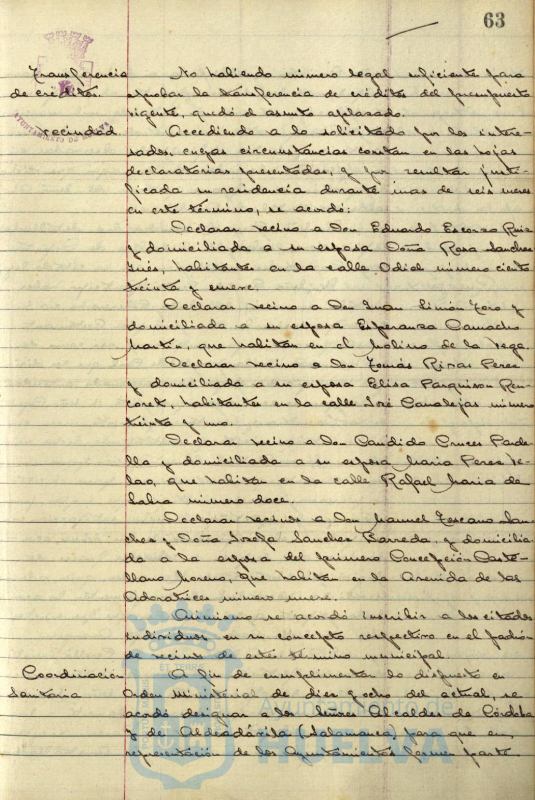 63
Transferencia
de créditos.
No habiendo número legal suficiente para
aprobar la transferencia de créditos del presupuesto
vigente, quedó el asunto aplazado.
vecindad
Accediendo a lo solicitado por los intere-
sados, cuyas circunstancias constan en las hojas
declaratorias presentadas, y por resultar justi-
ficada su residencia durante mas de seis meses
en este término, se acordó:
Declarar vecino a Don Eduardo Escorza Ruiz
y domiciliada a su esposa Doña Rosa Sanchez
Inés, habitantes en la calle Odiel número ciento
treinta y nueve.
Declarar vecino a Don Juan Limón Toro y
domiciliada a su esposa Esperanza Camacho
Martín, que habitan en el Molino de la Vega.
Declarar vecino a Don Tomás Rivas Perez
y domiciliada a su esposa Elisa
habitantes en la calle José Canalejas número
treinta y uno.
Declarar vecino a Don Candido Cruces
y domiciliada a su esposa Maria Perez
que habitan en la calle Rafael Maria de
Labra número doce.
Declarar vecinos a Don Manuel Toscano San-
chez y Doña Josefa Sanchez Barreda, y domicilia-
da a la esposa del primero Concepción Caste-
llano Moreno, que habitan en la Avenida de las
Adoratrices número nueve.
Asimismo se acordó inscribir a los citados
individuos en su concepto respectivo en el padrón
de vecinos de este término municipal.
Coordinación
Sanitaria
A fin de cumplimentar lo dispuesto en
Orden Ministerial de diez y ocho del actual, se
acordó designar a los Señores Alcaldes de Córdoba
y de Aldeadávila (Salamanca) para que en
representación de los Ayuntamientos formen parte
Ayuntamiento de
HUELVA